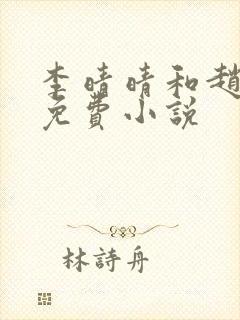 李晴晴和趙
免費小說
林詩舟